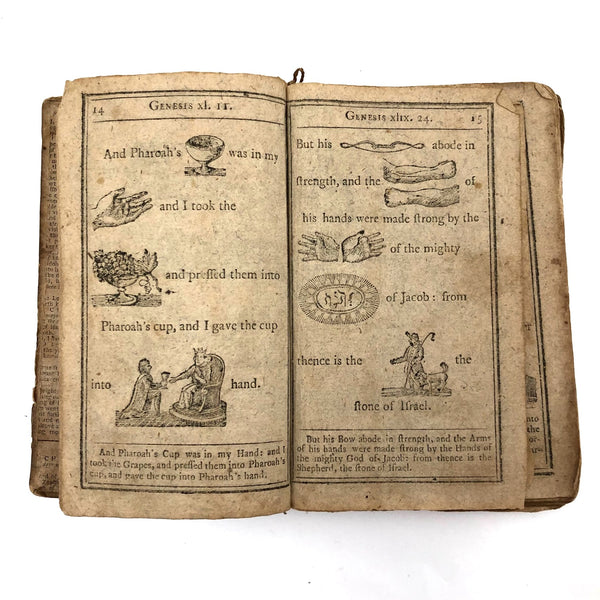 14 GENESIS xl. 11.
And Pharoah's was in my
and I took the
and preſſed them into
Pharoah's cup, and I gave the cup
into hand.
And Pharoah's Cup was in my Hand: and I
took the Grapes, and preſſed them into Pharoah's
cup, and gave the cup into Pharoah's hand.
GENESIS xlix. 24. 15
But his abode in
ſtrength, and the of
his hands were made ſtrong by the
of the mighty
of Jacob: from
thence is the the
ſtone of Iſrael.
But his Bow abode in ſtrength, and the Arms
of his hands were made ſtrong by the Hands of
the mighty God of Jacob: from thence is the
Shepherd, the ſtone of Iſrael.